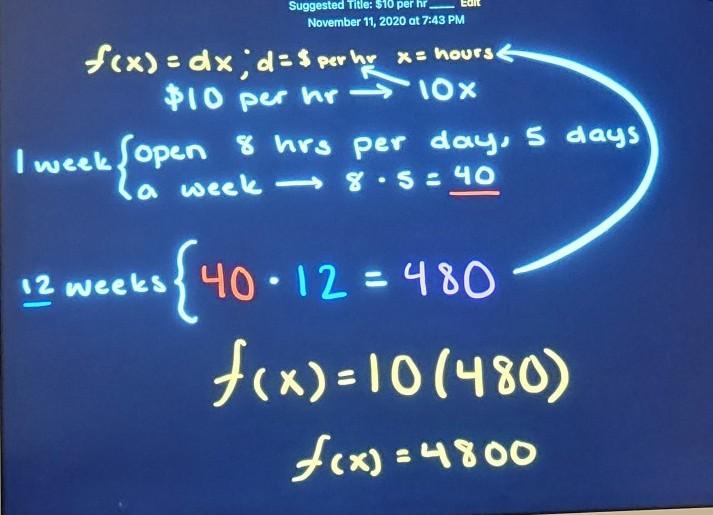 Suggested Title: $10 per hr ____ Edit
November 11, 2020 at 7:43 PM
f(x) = dx ; d = $ per hr x = hours
$10 per hr → 10x
1 week { open 8 hrs per day, 5 days
a week → 8 · 5 = 40
12 weeks { 40 · 12 = 480
f(x) = 10(480)
f(x) = 4800